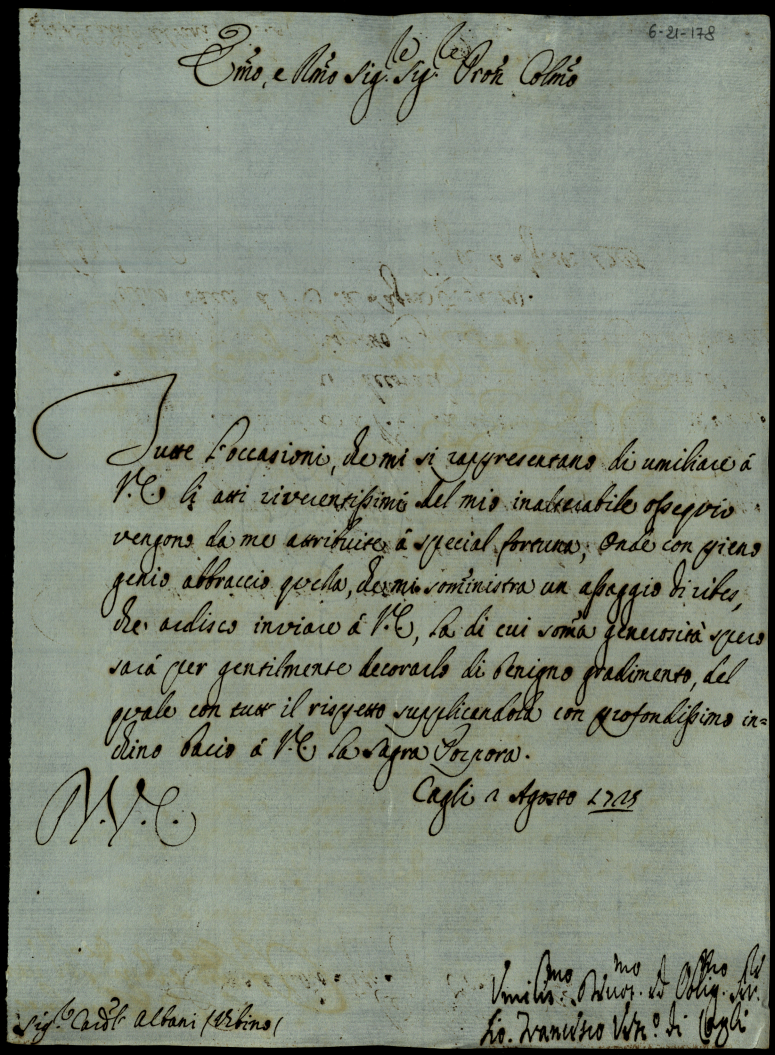 6-21-178
Em̃o, e Rm̃o Sig.re Sig.re Pron̄ Colm̃o
Tutte l'occasioni, che mi si rappresentano di umiliare á
V.E. li atti riverentissimi del mio inalterabile ossequio
vengono da me attribuite á special fortuna; Onde con pieno
genio abbraccio quella, che mi som̃inistra un assaggio di ribes,
che ardisco inviare á V.E., la di cui som̃a generosità spero
sarà per gentilmente decorarlo di benigno gradimento, del
quale con tutt il rispetto supplicandola con profondissimo in=
chino bacio á V.E. la Sagra Porpora.
Cagli 2 Agosto 1725
V.E.
Umiliss.mo Devot.mo ed Oblig.mo Ser.re
Gio. Francesco Vesc.o di Cagli
Sig.r Card.l Albani (Urbino(